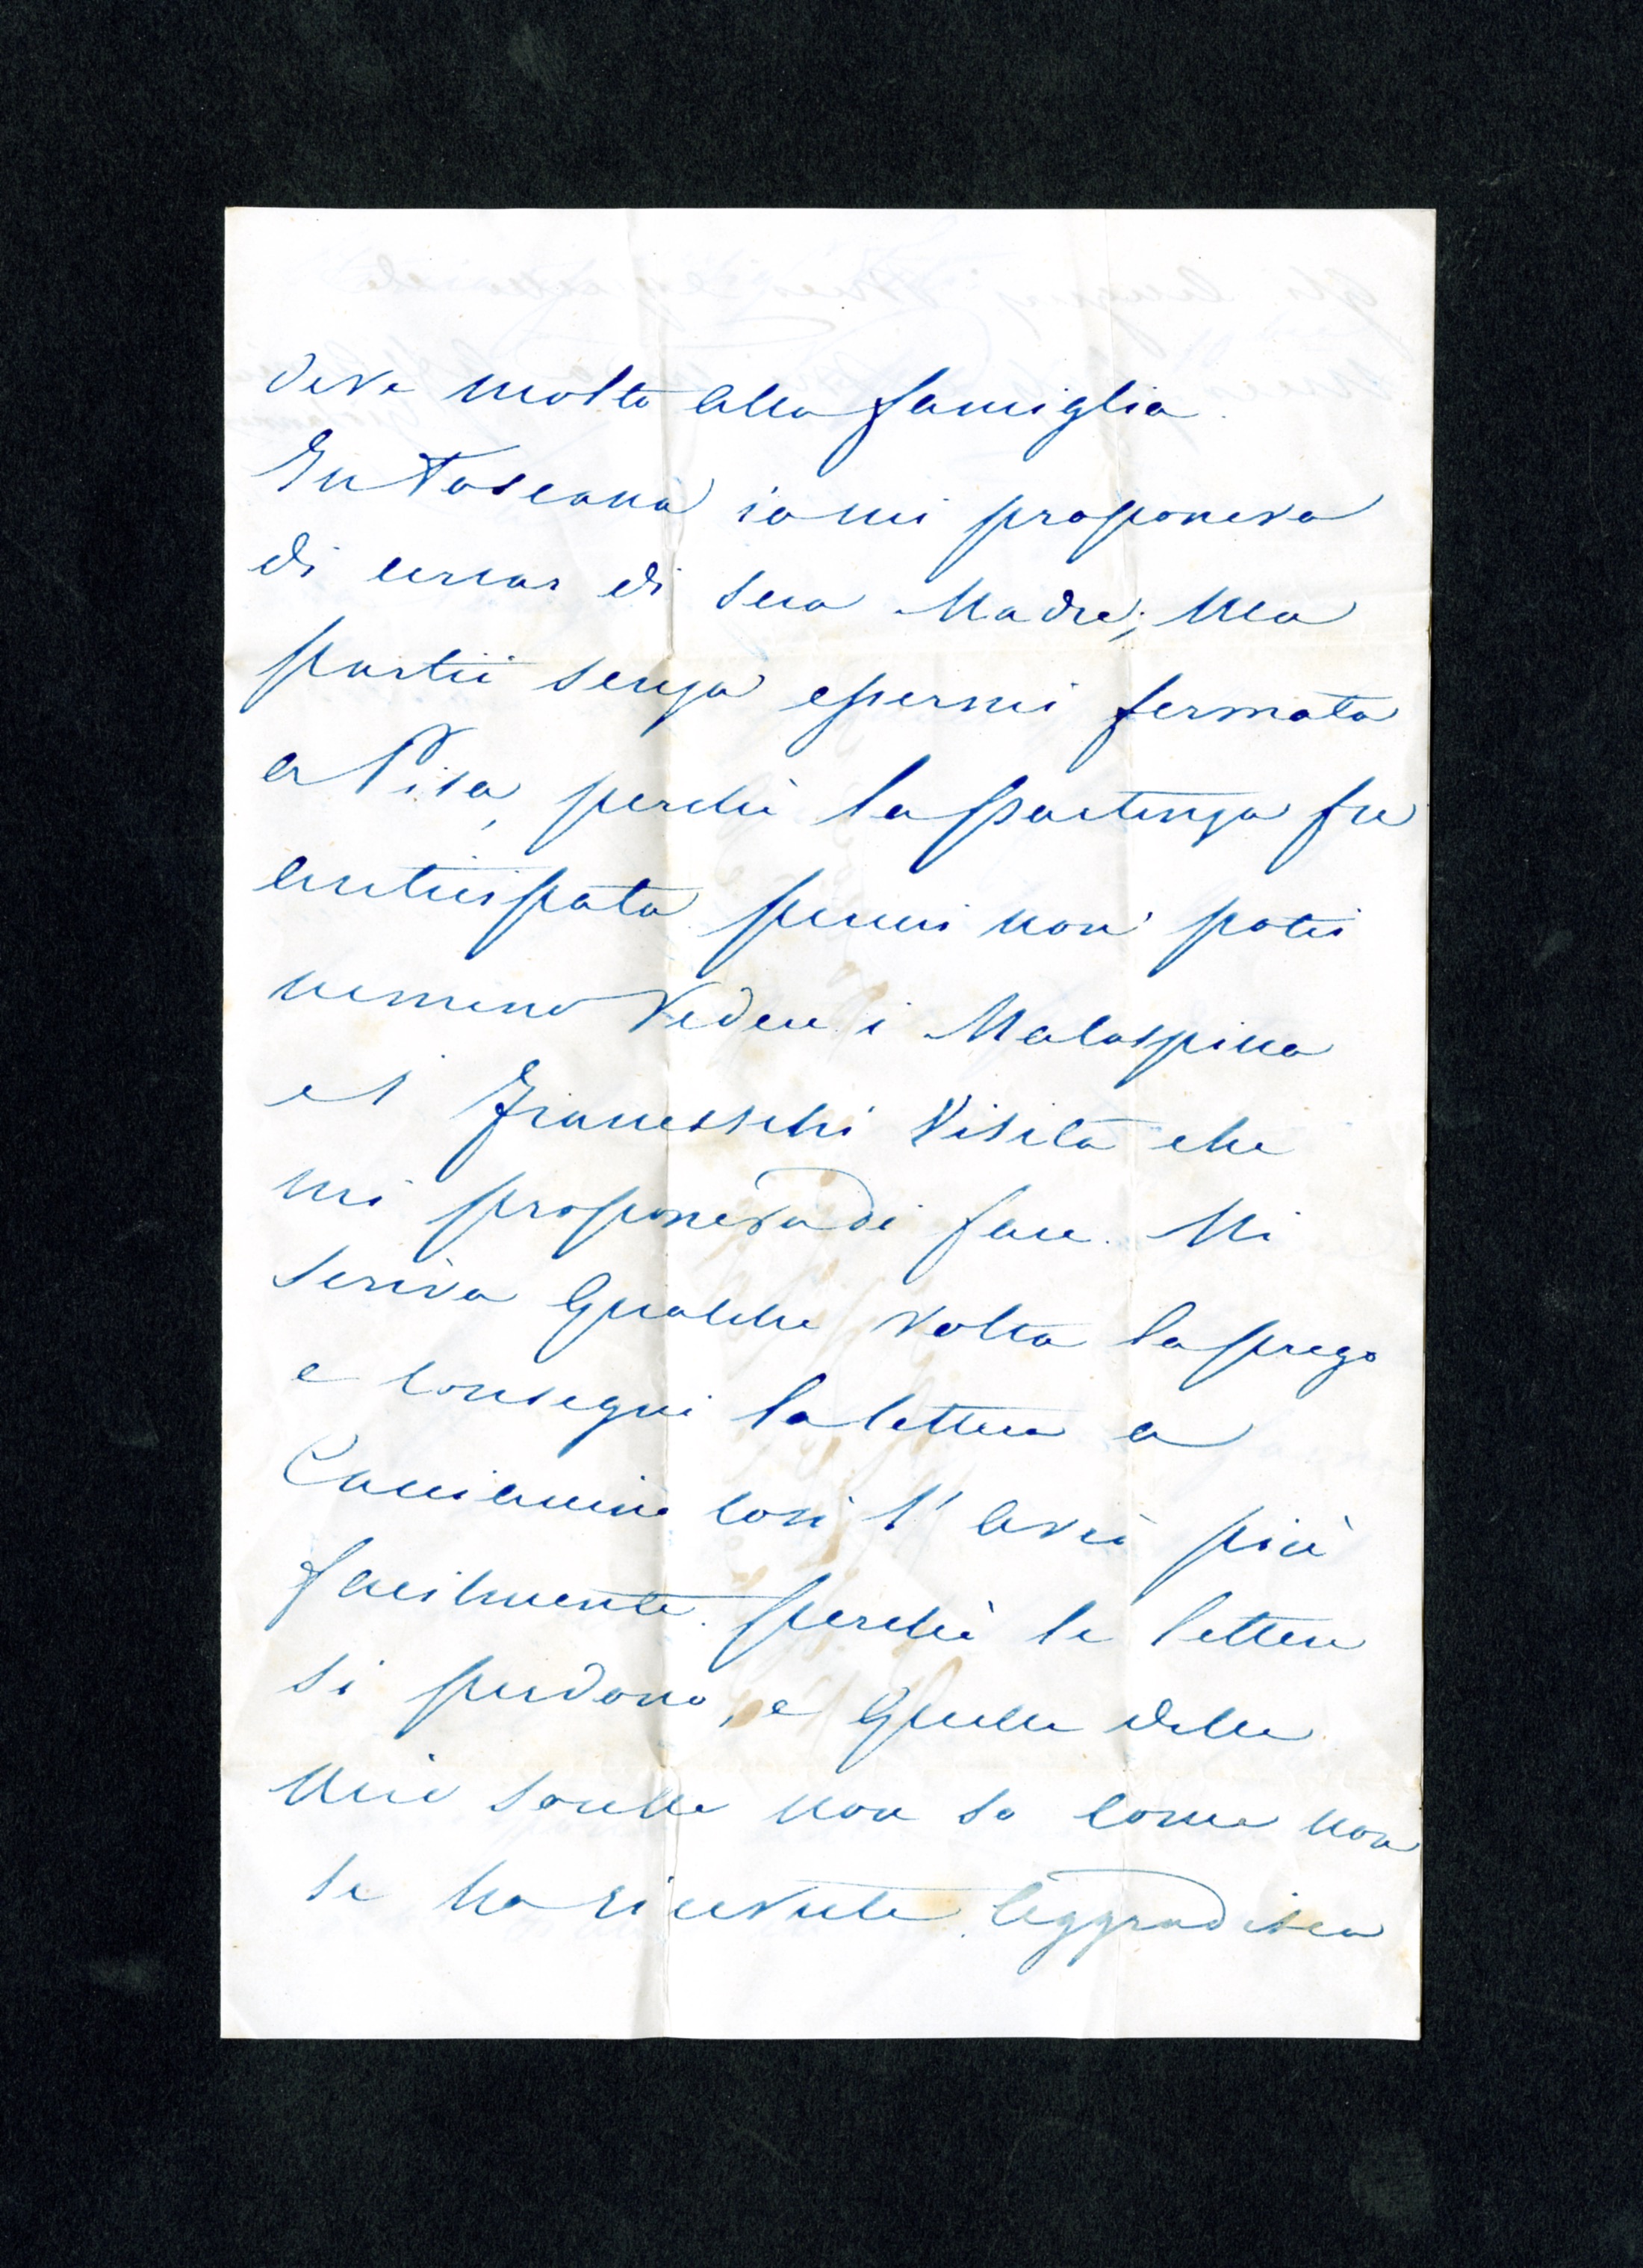 deve molto alla famiglia.
In Toscana io mi proponeva
di cercar di sua Madre; ma
partii senza essermi fermata
a Pisa, perchè la partenza fu
anticipata perciò non potei
nemmeno vedere i Malaspina
e i Franceschi visita che
mi proponeva di fare. Mi
scriva qualche volta la prego
e consegni la lettera a
così l'avrò più
facilmente. perchè le lettere
si perdono, e quelle delle
mie sorelle non so come non
le ho ricevute. Aggradisca